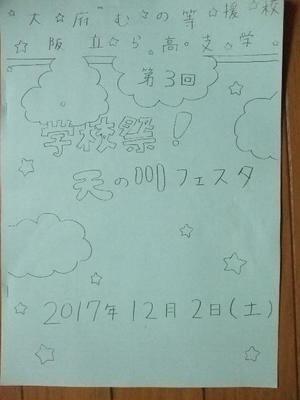 大阪府立むらの高等支援学校
第3回
学校祭!
天の川フェスタ
2017年12月2日(土)